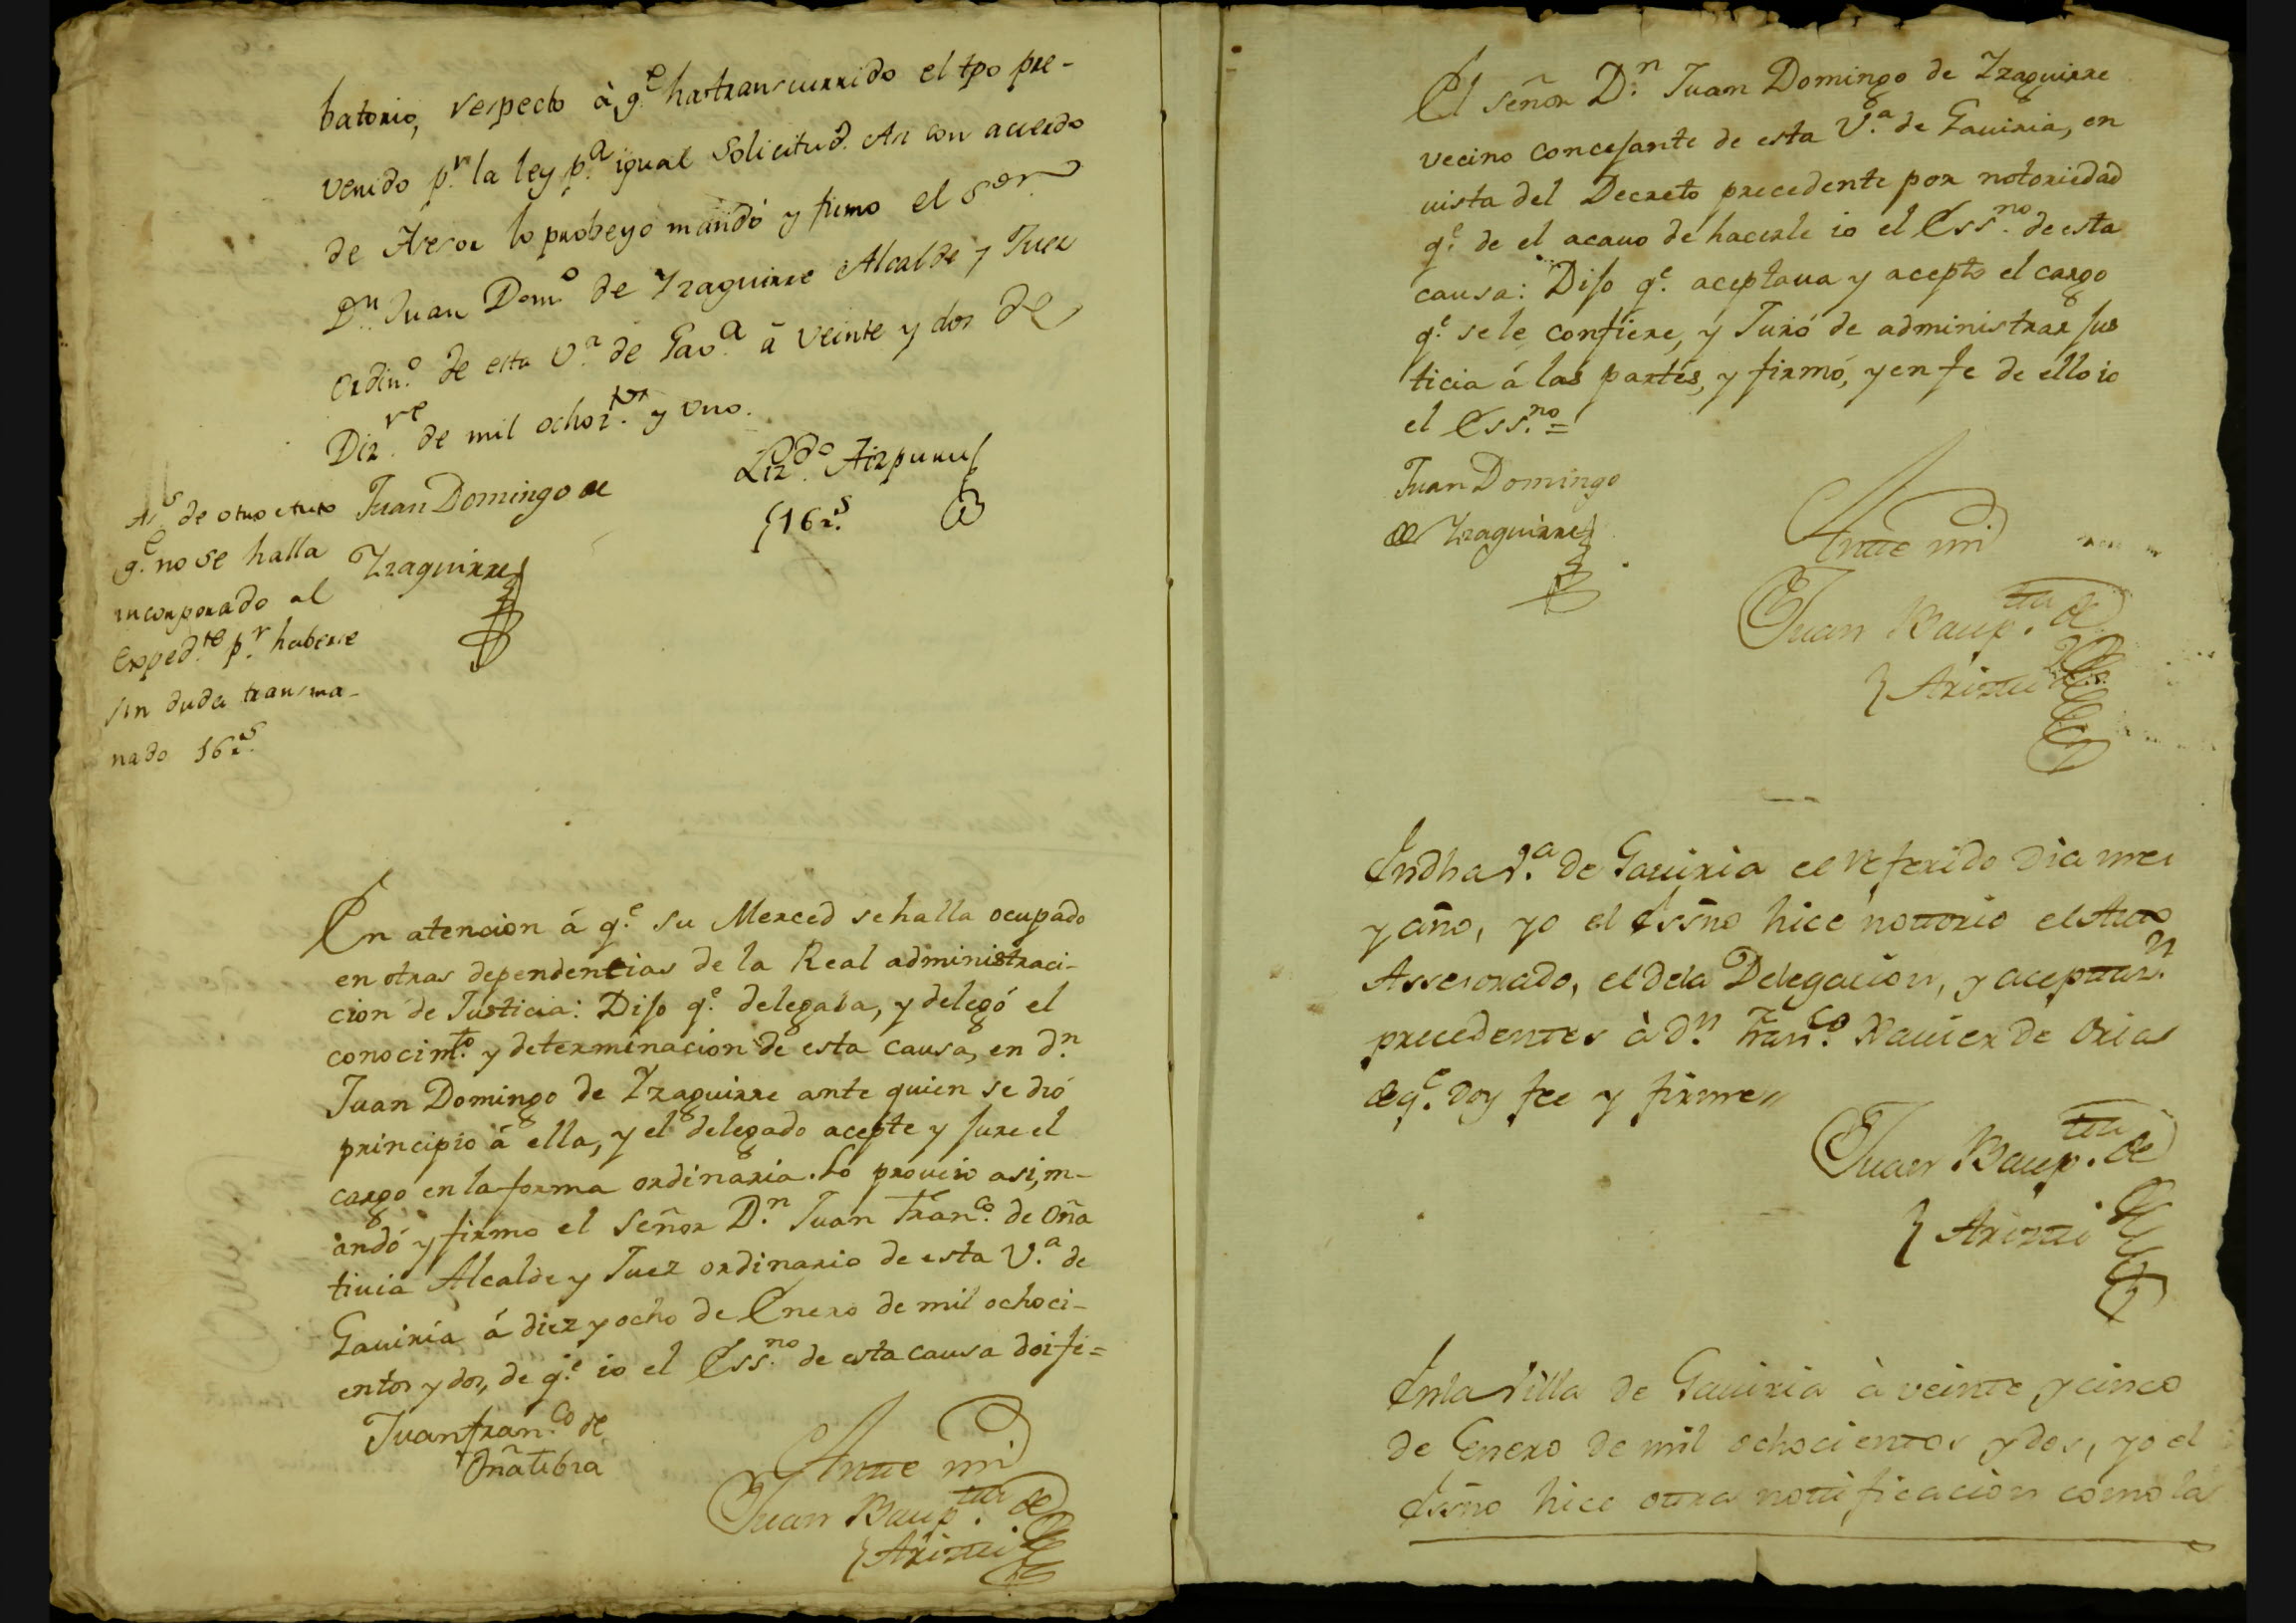 batorio, respecto à q.e ha transcurrido el tpo pre-
venido p.r la ley p.a igual solicitud. Asi con acuerdo
de Asesor lo probeyo mandó y firmo el s.or
D.n Juan Dom.o de Yzaguirre Alcalde y Juez
Ordin.o de esta V.a de Gav.a à veinte y dos de
Diz.re de mil ochoz.tos y uno.
Juan Domingo de
Yzaguirre
Liz.do Aizpuru
16 r.s
As.s de otro Auto
q.e no se halla
incorporado al
Exped.te p.r haberse
sin duda transma-
nado 16 r.s
En atencion á q.e su Merced se halla ocupado
en otras dependencias de la Real administraci-
cion de Justicia: Dijo q.e delegaba, y delegó el
conocim.to y determinacion de esta causa, en d.n
Juan Domingo de Yzaguirre ante quien se dió
principio á ella, y el delegado acepte y jure el
cargo en la forma ordinaria. Lo proveio asi, m-
andó y firmo el Señor D.n Juan Fran.co de Oña
tivia Alcalde y Juez ordinario de esta V.a de
Gauiria á diez y ocho de Enero de mil ochoci-
entos y dos, de q.e io el Ess.no de esta causa doi fe=
Juan fran.co de
Oñatibia
Ante mi
Juan Baup.ta de
Ariztii
El señor D.n Juan Domingo de Yzaguirre
vecino concejante de esta V.a de Gauiria, en
vista del Decreto precedente por notoriedad
q.e de el acauo de hacerle io el Ess.no de esta
causa: Dijo q.e aceptaua y acepto el cargo
q.e se le confiere, y Juró de administrar jus
ticia á las partes, y firmó, y en fe de ello io
el Ess.no =
Juan Domingo
de Yzaguirre
Ante mi
Juan Baup.ta de
Ariztii
En dha V.a de Gauiria el referido dia mes
y año, yo el Essno hice notorio el Auto
Assesorado, el de la Delegacion, y aceptac.n
precedentes à D.n Fran.co Xauier de Orias
de q.e doy fee y firme//
Juan Baup.ta de
Ariztii
En la Villa de Gauiria à veinte y cinco
de Enero de mil ochocientos y dos, yo el
Essno hice otra notificacion como la